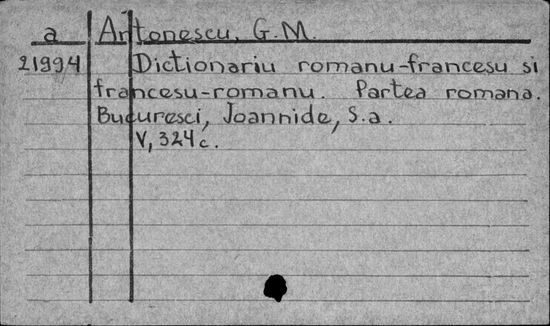 a Antonescu, G.M.
21994 Dictionariu romanu-francesu si
francesu-romanu. Partea romana.
Bucuresci, Joannide, S.a.
V, 324 c.